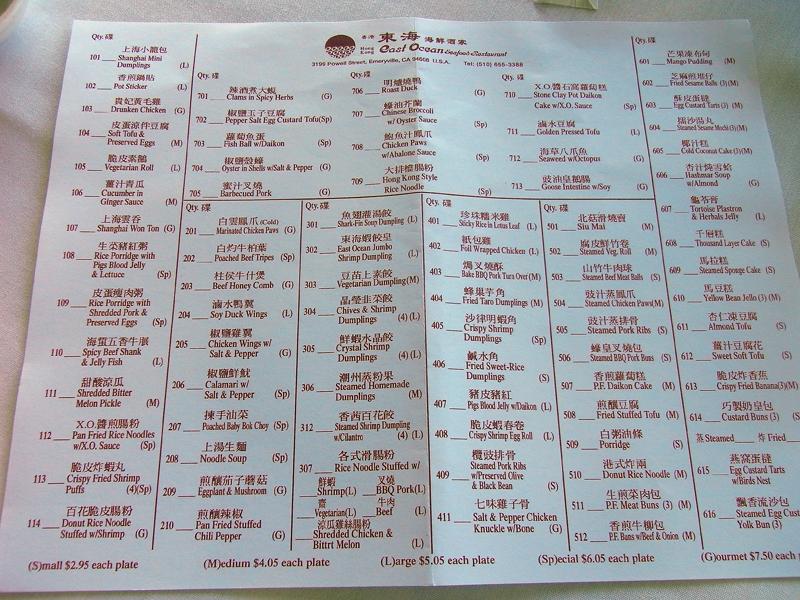 香港 Hong Kong
東海 海鮮酒家
East Ocean Seafood Restaurant
3199 Powell Street, Emeryville, CA 94608 U.S.A. Tel: (510) 655-3388
Qty. 碟
上海小籠包
101 ___ Shanghai Mini
Dumplings (L)
香煎鍋貼
102 ___ Pot Sticker (L)
貴妃黃毛雞
103 ___ Drunken Chicken (G)
皮蛋涼伴豆腐
104 ___ Soft Tofu &
Preserved Eggs (M)
脆皮素鵝
105 ___ Vegetarian Roll (L)
薑汁青瓜
106 ___ Cucumber in
Ginger Sauce (M)
上海雲吞
107 ___ Shanghai Won Ton (G)
生菜豬紅粥
108 ___ Rice Porridge with
Pigs Blood Jelly
& Lettuce (Sp)
皮蛋瘦肉粥
109 ___ Rice Porridge with
Shredded Pork &
Preserved Eggs (Sp)
海蜇五香牛𦟌
110 ___ Spicy Beef Shank
& Jelly Fish (L)
甜酸涼瓜
111 ___ Shredded Bitter
Melon Pickle (M)
X.O.醬煎腸粉
112 ___ Pan Fried Rice Noodles
w/X.O. Sauce (Sp)
脆皮炸蝦丸
113 ___ Crispy Fried Shrimp
Puffs (4)(Sp)
百花脆皮腸粉
114 ___ Donut Rice Noodle
Stuffed w/Shrimp (G)
Qty. 碟
辣酒煮大蜆
701 ___ Clams in Spicy Herbs (G)
椒鹽玉子豆腐
702 ___ Pepper Salt Egg Custard Tofu(Sp)
蘿蔔魚蛋
703 ___ Fish Ball w/Daikon (Sp)
椒鹽殼蠔
704 ___ Oyster in Shells w/Salt & Pepper (G)
蜜汁叉燒
705 ___ Barbecued Pork (G)
Qty. 碟
明爐燒鴨
706 ___ Roast Duck (G)
蠔油芥蘭
707 ___ Chinese Broccoli
w/ Oyster Sauce (Sp)
鮑魚汁鳳爪
708 ___ Chicken Paws
w/Abalone Sauce (Sp)
大排檔腸粉
709 ___ Hong Kong Style
Rice Noodle (Sp)
Qty. 碟
X.O.醬石窩蘿蔔糕
710 ___ Stone Clay Pot Daikon
Cake w/X.O. Sauce (Sp)
滷水豆腐
711 ___ Golden Pressed Tofu (L)
海草八爪魚
712 ___ Seaweed w/Octopus (G)
豉油皇鵝腸
713 ___ Goose Intestine w/Soy (G)
Qty. 碟
白雲鳳爪 (Cold)
201 ___ Marinated Chicken Paws (G)
白灼牛柏葉
202 ___ Poached Beef Tripes (Sp)
柱侯牛什煲
203 ___ Beef Honey Comb (G)
滷水鴨翼
204 ___ Soy Duck Wings (L)
椒鹽雞翼
205 ___ Chicken Wings w/
Salt & Pepper (G)
椒鹽鮮魷
206 ___ Calamari w/
Salt & Pepper (Sp)
揀手油菜
207 ___ Poached Baby Bok Choy (Sp)
上湯生麵
208 ___ Noodle Soup (Sp)
煎釀茄子蘑菇
209 ___ Eggplant & Mushroom (G)
煎釀辣椒
210 ___ Pan Fried Stuffed
Chili Pepper (G)
Qty. 碟
魚翅灌湯餃
301 ___ Shark-Fin Soup Dumpling (L)
東海蝦餃皇
302 ___ East Ocean Jumbo
Shrimp Dumpling (L)
豆苗上素餃
303 ___ Vegetarian Dumpling (M)
晶瑩韭菜餃
304 ___ Chives & Shrimp
Dumplings (4) (L)
鮮蝦水晶餃
305 ___ Crystal Shrimp
Dumplings (4) (L)
潮州蒸粉果
306 ___ Steamed Homemade
Dumplings (M)
香茜百花餃
___ Steamed Shrimp Dumpling
w/Cilantro (4) (L)
各式滑腸粉
307 ___ Rice Noodle Stuffed w/
鮮蝦 叉燒
___Shrimp(L) ___BBQ Pork(L)
齋 牛肉
___Vegetarian(L) ___Beef (L)
涼瓜雞絲腸粉
___Shredded Chicken &
Bittrt Melon (L)
Qty. 碟
珍珠糯米雞
401 ___ Sticky Rice in Lotus Leaf (L)
紙包雞
402 ___ Foil Wrapped Chicken (L)
焗叉燒酥
403 ___ Bake BBQ Pork Turn Over (M)
蜂巢芋角
404 ___ Fried Taro Dumplings (M)
沙律明蝦角
405 ___ Crispy Shrimp
Dumplings (Sp)
鹹水角
406 ___ Fried Sweet-Rice
Dumplings (S)
豬皮豬紅
407 ___ Pigs Blood Jelly w/Daikon (L)
脆皮蝦春卷
408 ___ Crispy Shrimp Egg Roll (L)
欖豉排骨
409 ___ Steamed Pork Ribs
w/Preserved Olive
& Black Bean (S)
七味雞子骨
411 ___ Salt & Pepper Chicken
Knuckle w/Bone (G)
Qty. 碟
北菇燒賣
501 ___ Siu Mai (M)
腐皮鮮竹卷
502 ___ Steamed Veg. Roll (M)
山竹牛肉球
503 ___ Steamed Beef Meat Balls (S)
豉汁蒸鳳爪
504 ___ Steamed Chicken Paws(M)
豉汁蒸排骨
505 ___ Steamed Pork Ribs (S)
蠔皇叉燒包
506 ___ Steamed BBQ Pork Buns (S)
香煎蘿蔔糕
507 ___ P.F. Daikon Cake (M)
煎釀豆腐
508 ___ Fried Stuffed Tofu (M)
白粥油條
509 ___ Porridge (S)
港式炸兩
510 ___ Donut Rice Noodle (M)
生煎菜肉包
511 ___ P.F. Meat Buns (3) (M)
香煎牛柳包
512 ___ P.F. Buns w/Beef & Onion (M)
Qty. 碟
芒果凍布甸
601 ___ Mango Pudding (M)
芝麻煎堆仔
602 ___ Fried Sesame Balls (3)(M)
酥皮蛋撻
603 ___ Egg Custard Tarts (3) (M)
擂沙湯丸
604 ___ Steamed Sesame Mochi (3)(M)
椰汁糕
605 ___ Cold Coconut Cake (3)(M)
杏汁燉雪蛤
606 ___ Hashmar Soup
w/Almond (G)
龜苓膏
607 ___ Tortoise Plastron
& Herbals Jelly (L)
千層糕
608 ___ Thousand Layer Cake (S)
馬拉糕
609 ___ Steamed Sponge Cake (S)
馬豆糕
610 ___ Yellow Bean Jello (3) (M)
杏仁凍豆腐
611 ___ Almond Tofu (S)
薑汁豆腐花
612 ___ Sweet Soft Tofu (S)
脆皮炸香蕉
613 ___ Crispy Fried Banana(3)(M)
巧製奶皇包
614 ___ Custard Buns (3) (S)
蒸 Steamed___ 炸 Fried
燕窩蛋撻
615 ___ Egg Custard Tarts
w/Birds Nest
飄香流沙包
616 ___ Steamed Egg Cust
Yolk Bun (3)
(S)mall $2.95 each plate (M)edium $4.05 each plate (L)arge $5.05 each plate (Sp)ecial $6.05 each plate (G)ourmet $7.50 each p